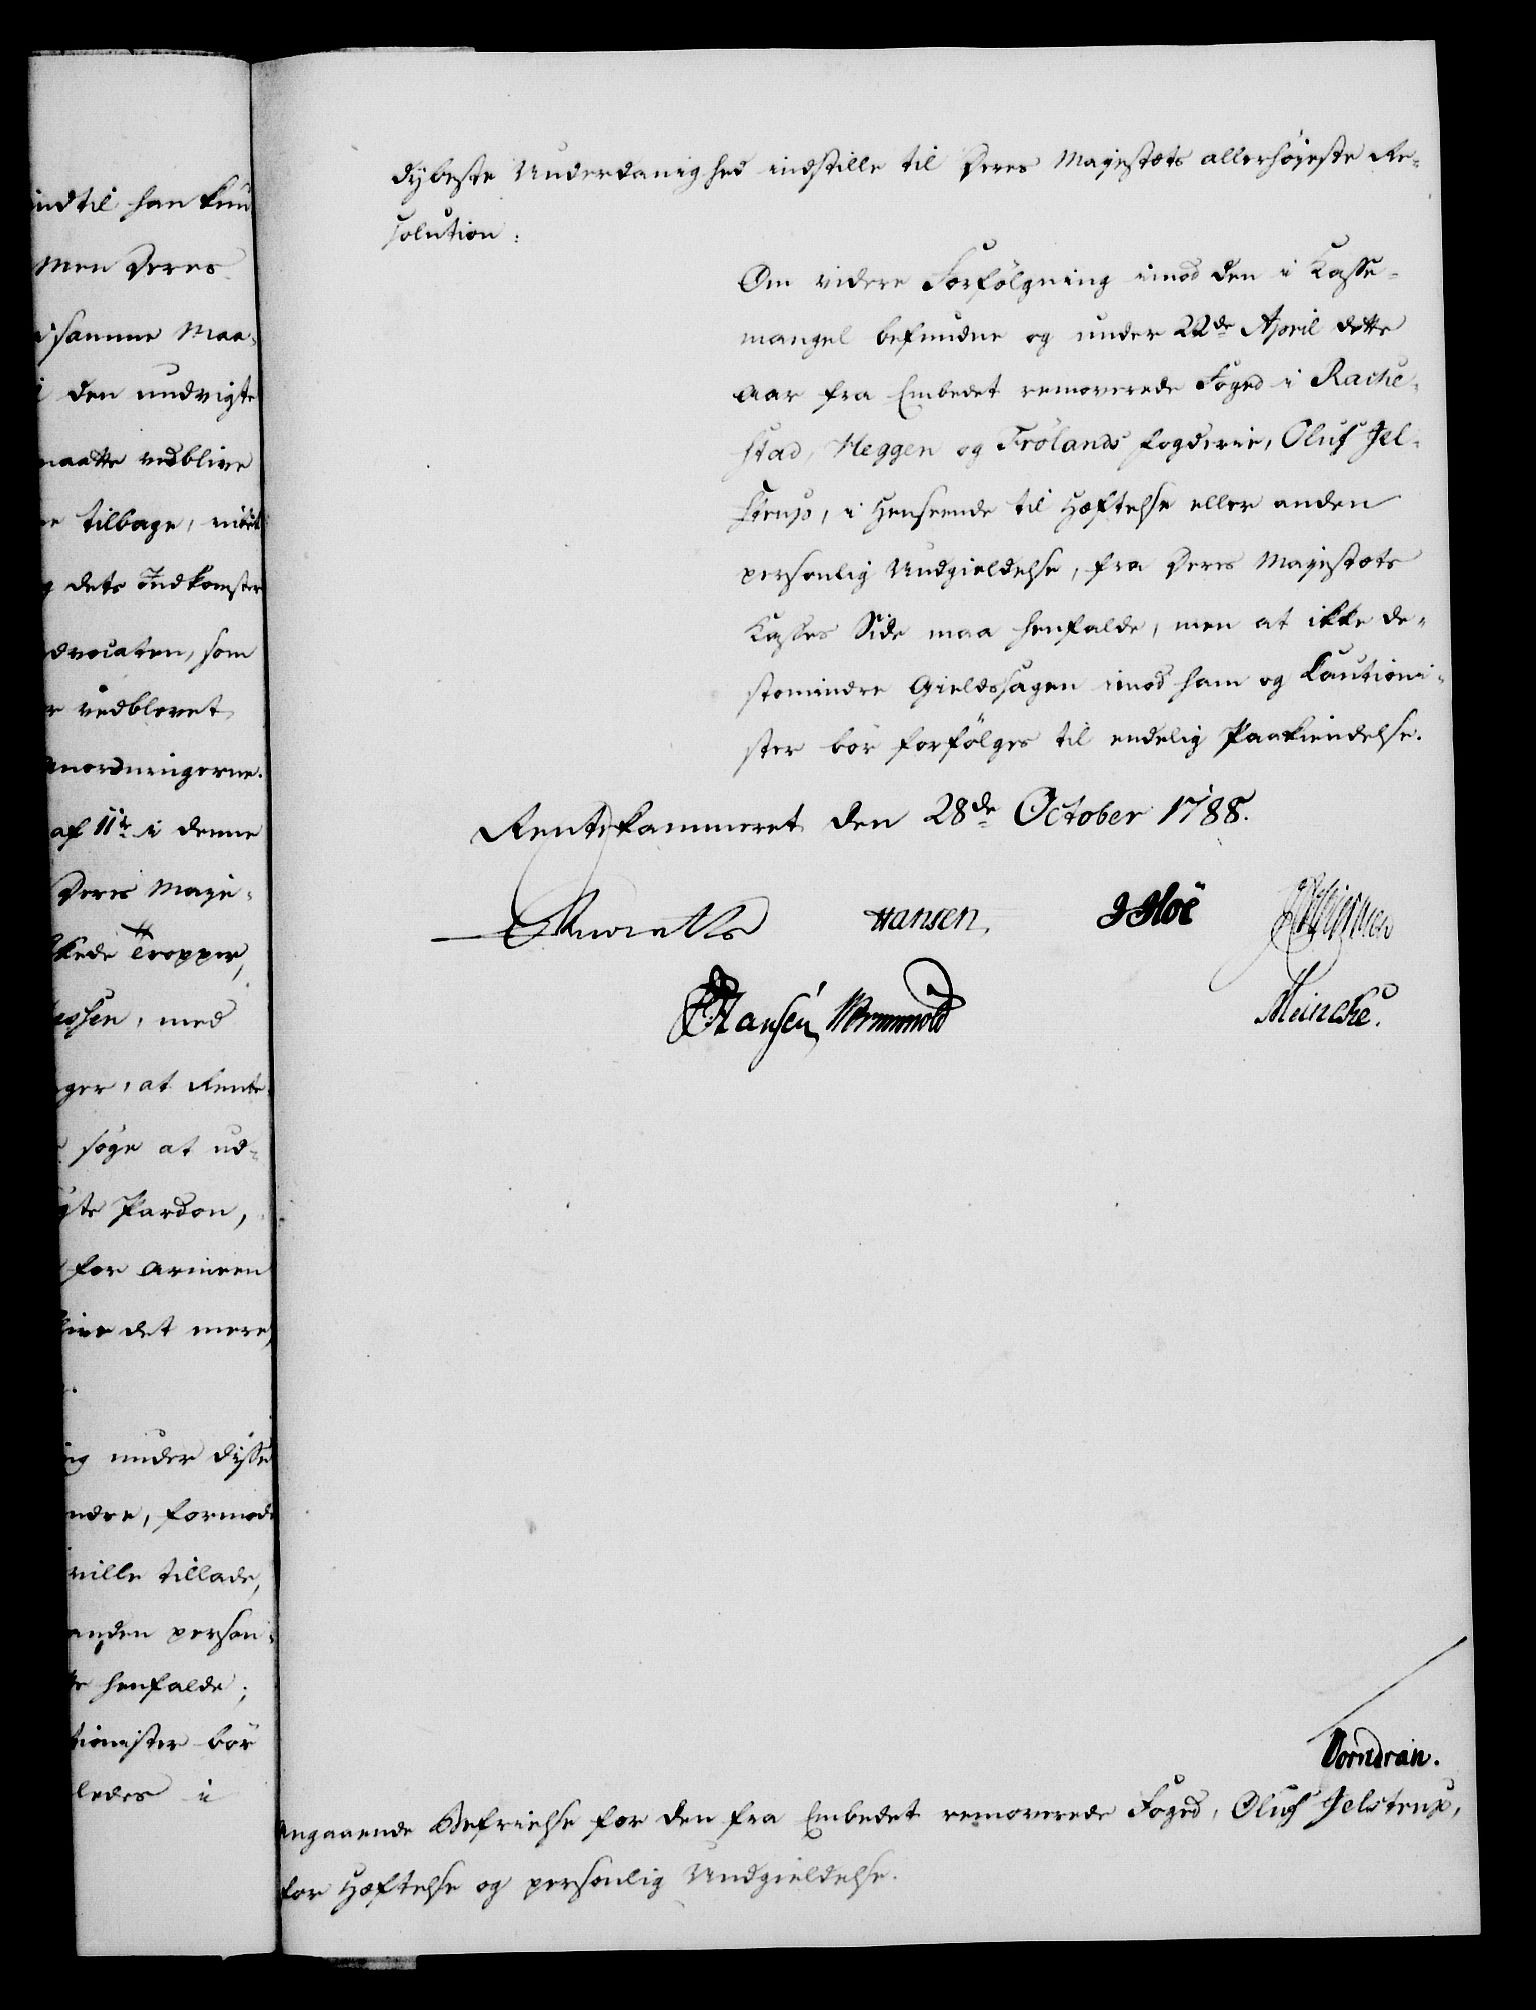 indtil han kun
Men Deres
samme Maa-
den undvigte
maatte vedblive
tilbage, indtil
dets Indkomster
dvocaten, som
vedblevet
Anordningerne.
af 11te i denne
Deres Maje-
Tropper,
med
at Rente-
söge at ud-
Pardon,
for Armeen
det mere,
under disse
ndre, formode
ville tillade,
anden person-
henfalde;
tionister bör
ledes i
dybeste Underdanighed indstille til Deres Majestæts allerhöjeste Re-
solution:
Om videre Forfölgning imod den i Kasse-
mangel befundne og under 22de April dette
Aar fra Embedet removerede Foged i Racke-
stad, Heggen og Frölands Fogderie, Oluf Jel-
strup, i Henseende til Hæftelse eller anden
personlig Undgieldelse, fra Deres Majestæts
Kasses Side maa henfalde, men at ikke de-
stomindre Gieldssagen imod ham og Cautioni-
ster bör forfölges til endelig Paakiendelse.
Rentekammeret den 28de October 1788.
Hansen
Hoë
Hansen
Wormskiold
Meincke.
Vorndran.
Angaaende Befrielse for den fra Embedet removerede Foged, Oluf Jelstrup,
for Hæftelse og personlig Undgieldelse.